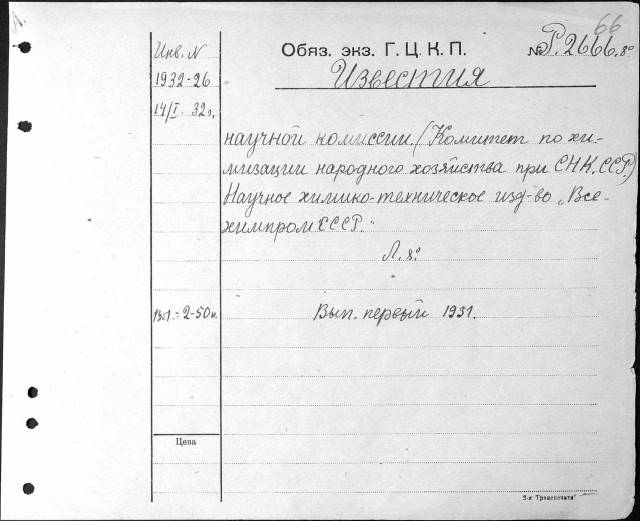 66
Инв. N
Обяз. экз. Г. Ц. К. П.
№ Р. 2666. 8°
1932-26
Известия
14/I. 32 г.
научной комиссии. (Комитет по хи-
мизации народного хозяйства при СНК. ССР.)
Научное химико-техническое изд-во „Все-
химпром СССР."
Л. 8°
В.1. = 2-50 к.
Вып. первый 1931.
Цена
2-я Транспечати